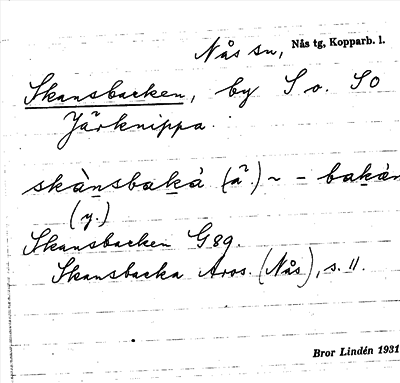 Nås sn, Nås tg, Kopparb. l.
Skansbacken, by S o. SO
Järknippa.
skànsbakà (ä.) ~ - bakàn
(y.)
Skansbacken G89.
Skansbacka Aros. (Nås), s. 11.
Bror Lindén 1931